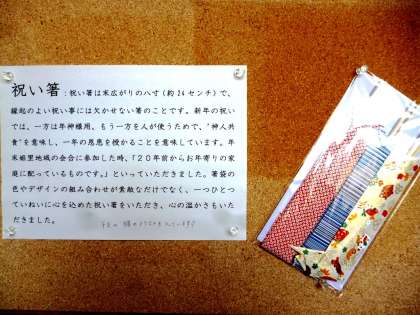 祝い箸：祝い箸は末広がりの八寸（約24センチ）で、
縁起のよい祝い事には欠かせない箸のことです。新年の祝い
では、一方は年神様用、もう一方を人が使うためで、“神人共
食”を意味し、一年の恩恵を授かることを意味しています。年
末姫里地域の会合に参加した時、「２０年前からお年寄りの家
庭に配っているものです。」といっていただきました。箸袋の
色やデザインの組み合わせが素敵なだけでなく、一つひとつ
ていねいに心を込めた祝い箸をいただき、心の温かさもいた
だきました。